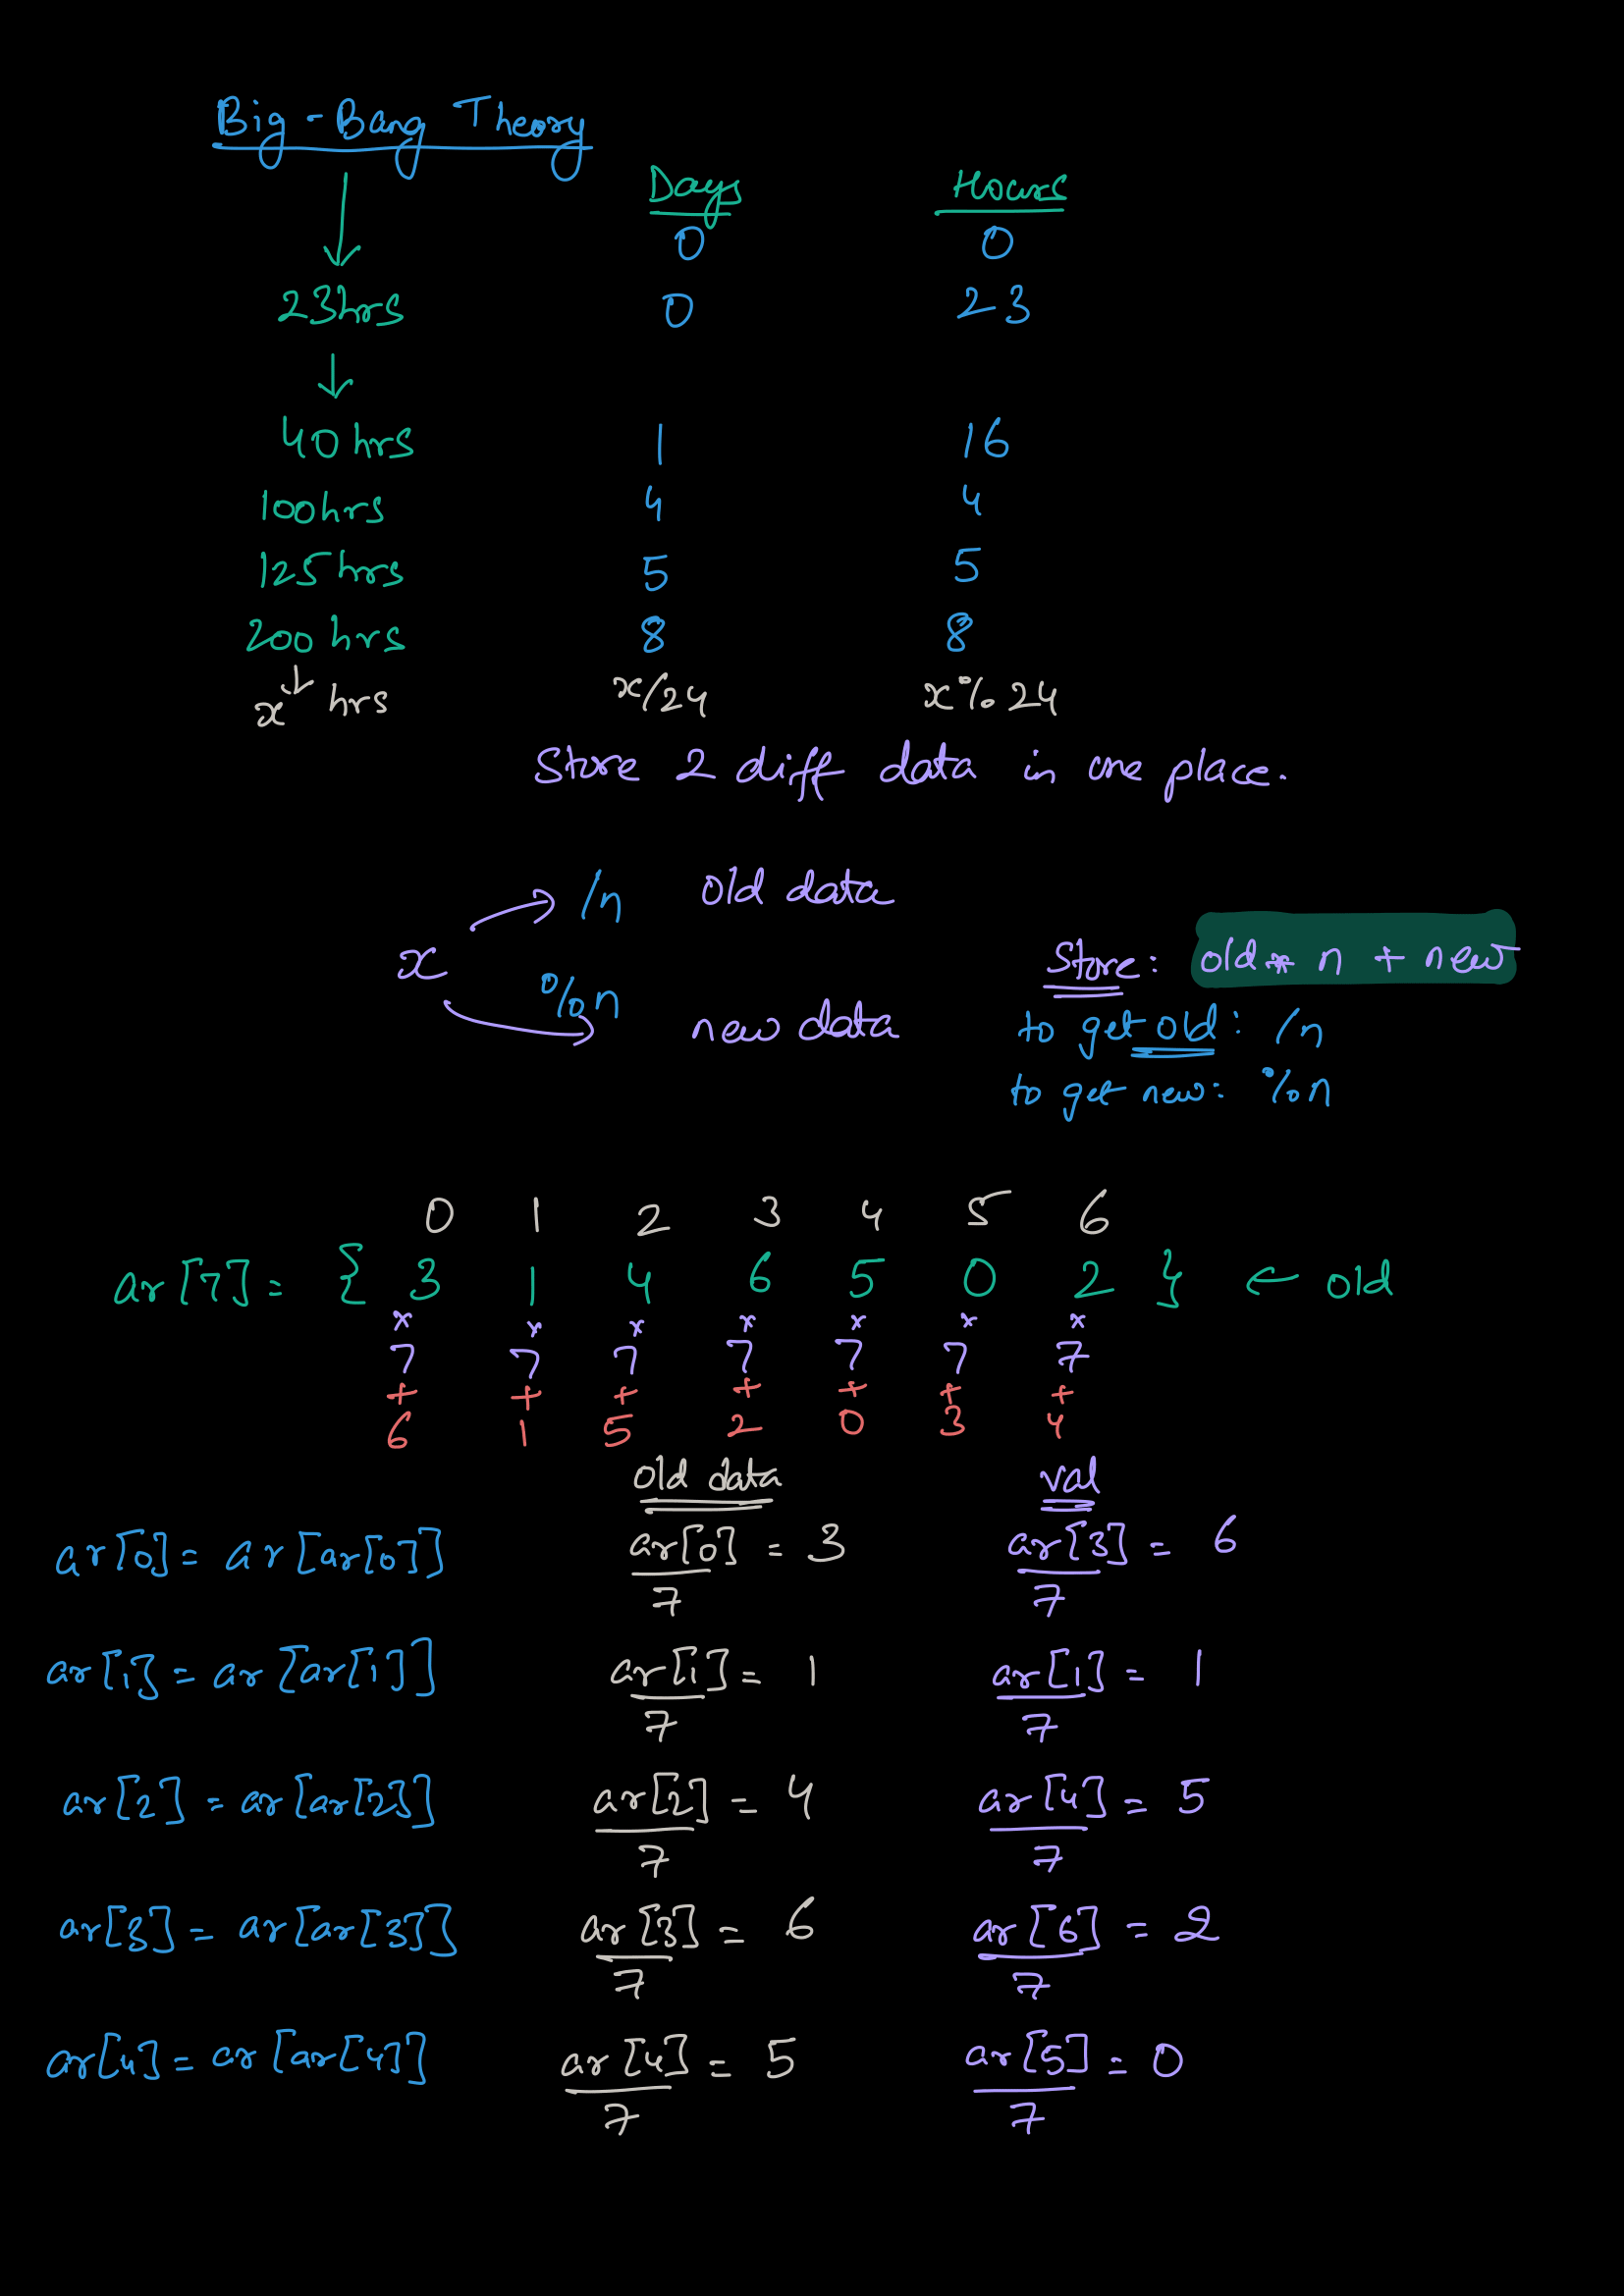 Big-Bang Theory
Days Hours
0 0
23hrs 0 23
40 hrs 1 16
100hrs 4 4
125 hrs 5 5
200 hrs 8 8
x hrs x/24 x%24
Store 2 diff data in one place.
/n old data
x Store: old * n + new
%n new data
to get old: /n
to get new: %n
0 1 2 3 4 5 6
ar[7] = { 3 1 4 6 5 0 2 } ← old
* * * * * * *
7 7 7 7 7 7 7
+ + + + + + +
6 1 5 2 0 3 4
old data val
ar[0] = ar[ar[0]] ar[0] = 3 ar[3] = 6
7 7
ar[1] = ar[ar[1]] ar[1] = 1 ar[1] = 1
7 7
ar[2] = ar[ar[2]] ar[2] = 4 ar[4] = 5
7 7
ar[3] = ar[ar[3]] ar[3] = 6 ar[6] = 2
7 7
ar[4] = ar[ar[4]] ar[4] = 5 ar[5] = 0
7 7